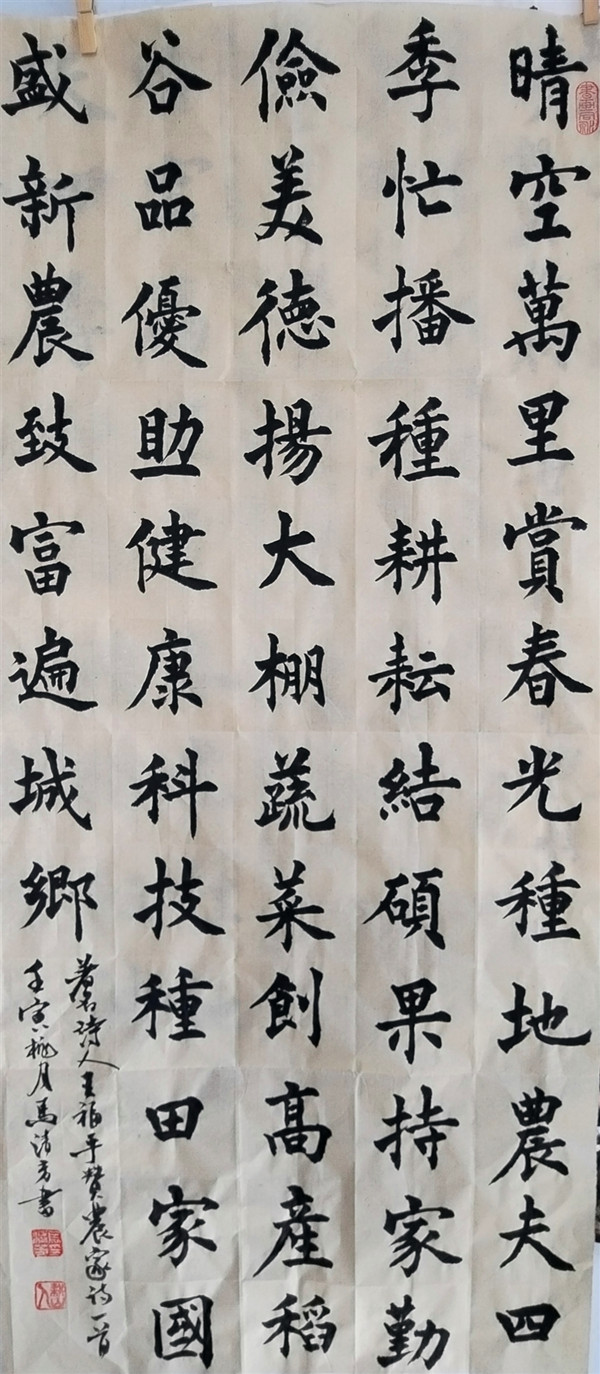 晴空萬里賞春光種地農夫四
季忙播種耕耘結碩果持家勤
儉美德揚大棚蔬菜創高產稻
谷品優助健康科技種田家國
盛新農致富遍城鄉
著名詩人王福平贊農家詩一首
壬寅桃月馬清方書